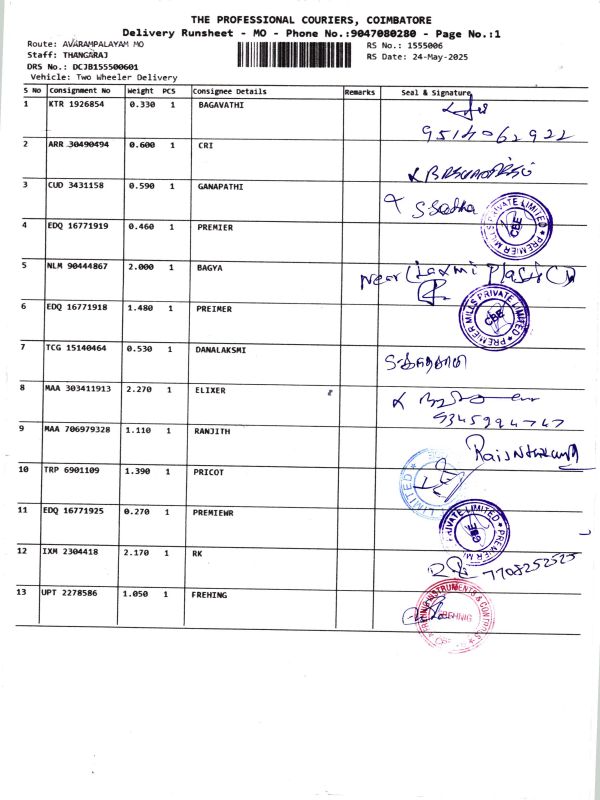 THE PROFESSIONAL COURIERS, COIMBATORE
Delivery Runsheet - MO - Phone No.:9047080280 - Page No.:1
Route: AVARAMPALAYAM MO
RS No.: 1555006
Staff: THANGARAJ
RS Date: 24-May-2025
DRS No.: DCJB155500601
Vehicle: Two Wheeler Delivery
S No Consignment No Weight PCS Consignee Details Remarks Seal & Signature
1 KTR 1926854 0.330 1 BAGAVATHI
2 ARR 30490494 0.600 1 CRI
3 CUD 3431158 0.590 1 GANAPATHI
4 EDQ 16771919 0.460 1 PREMIER PREMIER MILLS PRIVATE LIMITED CBE
5 NLM 90444867 2.000 1 BAGYA Near Laxmi Plastic
6 EDQ 16771918 1.480 1 PREIMER PREMIER MILLS PRIVATE LIMITED CBE
7 TCG 15140464 0.530 1 DANALAKSMI
8 MAA 303411913 2.270 1 ELIXER
9 MAA 706979328 1.110 1 RANJITH
10 TRP 6901109 1.390 1 PRICOT LIMITED
11 EDQ 16771925 0.270 1 PREMIEWR PRIVATE LIMITED PREMIER CBE
12 IXM 2304418 2.170 1 RK 7708252525
13 UPT 2278586 1.050 1 FREHING INSTRUMENTS & CONTROLS